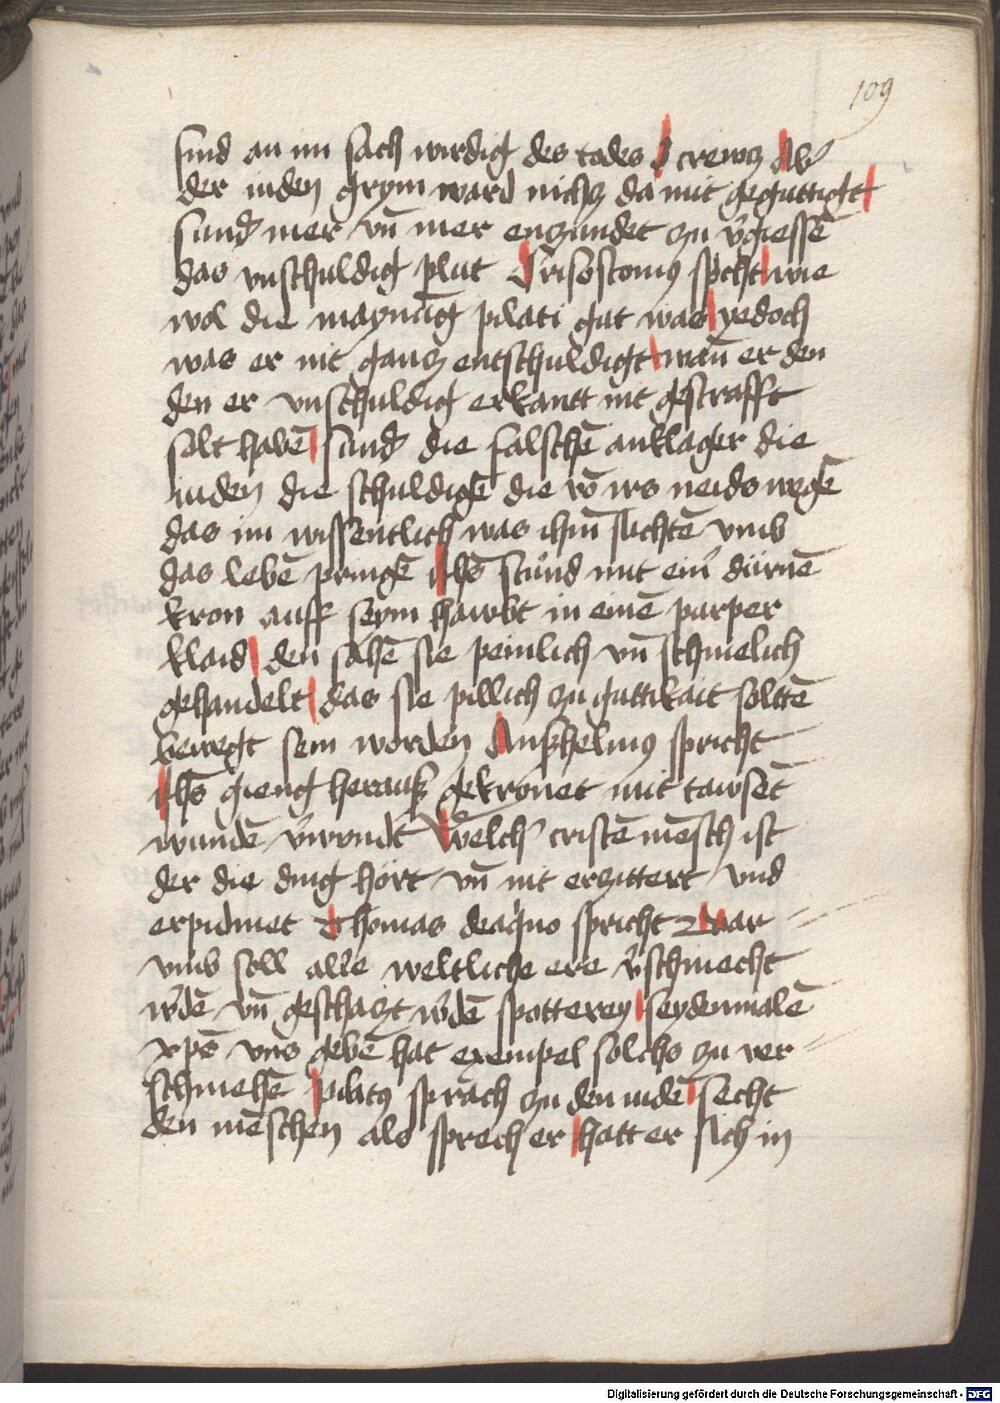 109
sind an im sach wirdig des todes d crewcz Ab᷑
der iuden grym ward nichcz da mit geguttigt
sund᷑ mer vn̄ mer enczundet zu v᷑giessē
das vnschuldig plut Crisostomꝯ spcht wie
wol die maynūg pilati gut was yedoch
was er nit gancz entschuldigt wan̄ er den
den er vnschuldig erkantt nit gestrafft
solt habē sund᷑ die falschē anklager die
iuden die schuldigē die vō irs neids wegē
das im wissentlich was ihm̄ süchtē vmb
das lebē pringē ihs̄ stund mit ein᷑ dürnē
kron auff seym hawbt in einē purper
klaid den sahē sie peinlich vn̄ schmelich
gehandelt das sie pillich zu guttikait soltē
bewegt sein worden Anßhelmꝯ spricht
ihs̄ gieng herauß gekrönet mit tawsēt
wundē v᷑wundt Welch᷑ cristē mēsch ist
der die ding hört vn̄ nit erzittert vnd
erpidmet Thomas deaq̇no spricht War
vmb soll alle weltliche ere v᷑schmecht
w᷑dē vn̄ geschaczt w᷑dē spotterey seydenmalē
xp̄s vns gebē hat exempel solchs zu ver
schmehē pilatꝯ sprach zu den iudē secht
den mēschen als sprech er hatt er sich in
Digitalisierung gefördert durch die Deutsche Forschungsgemeinschaft - DFG